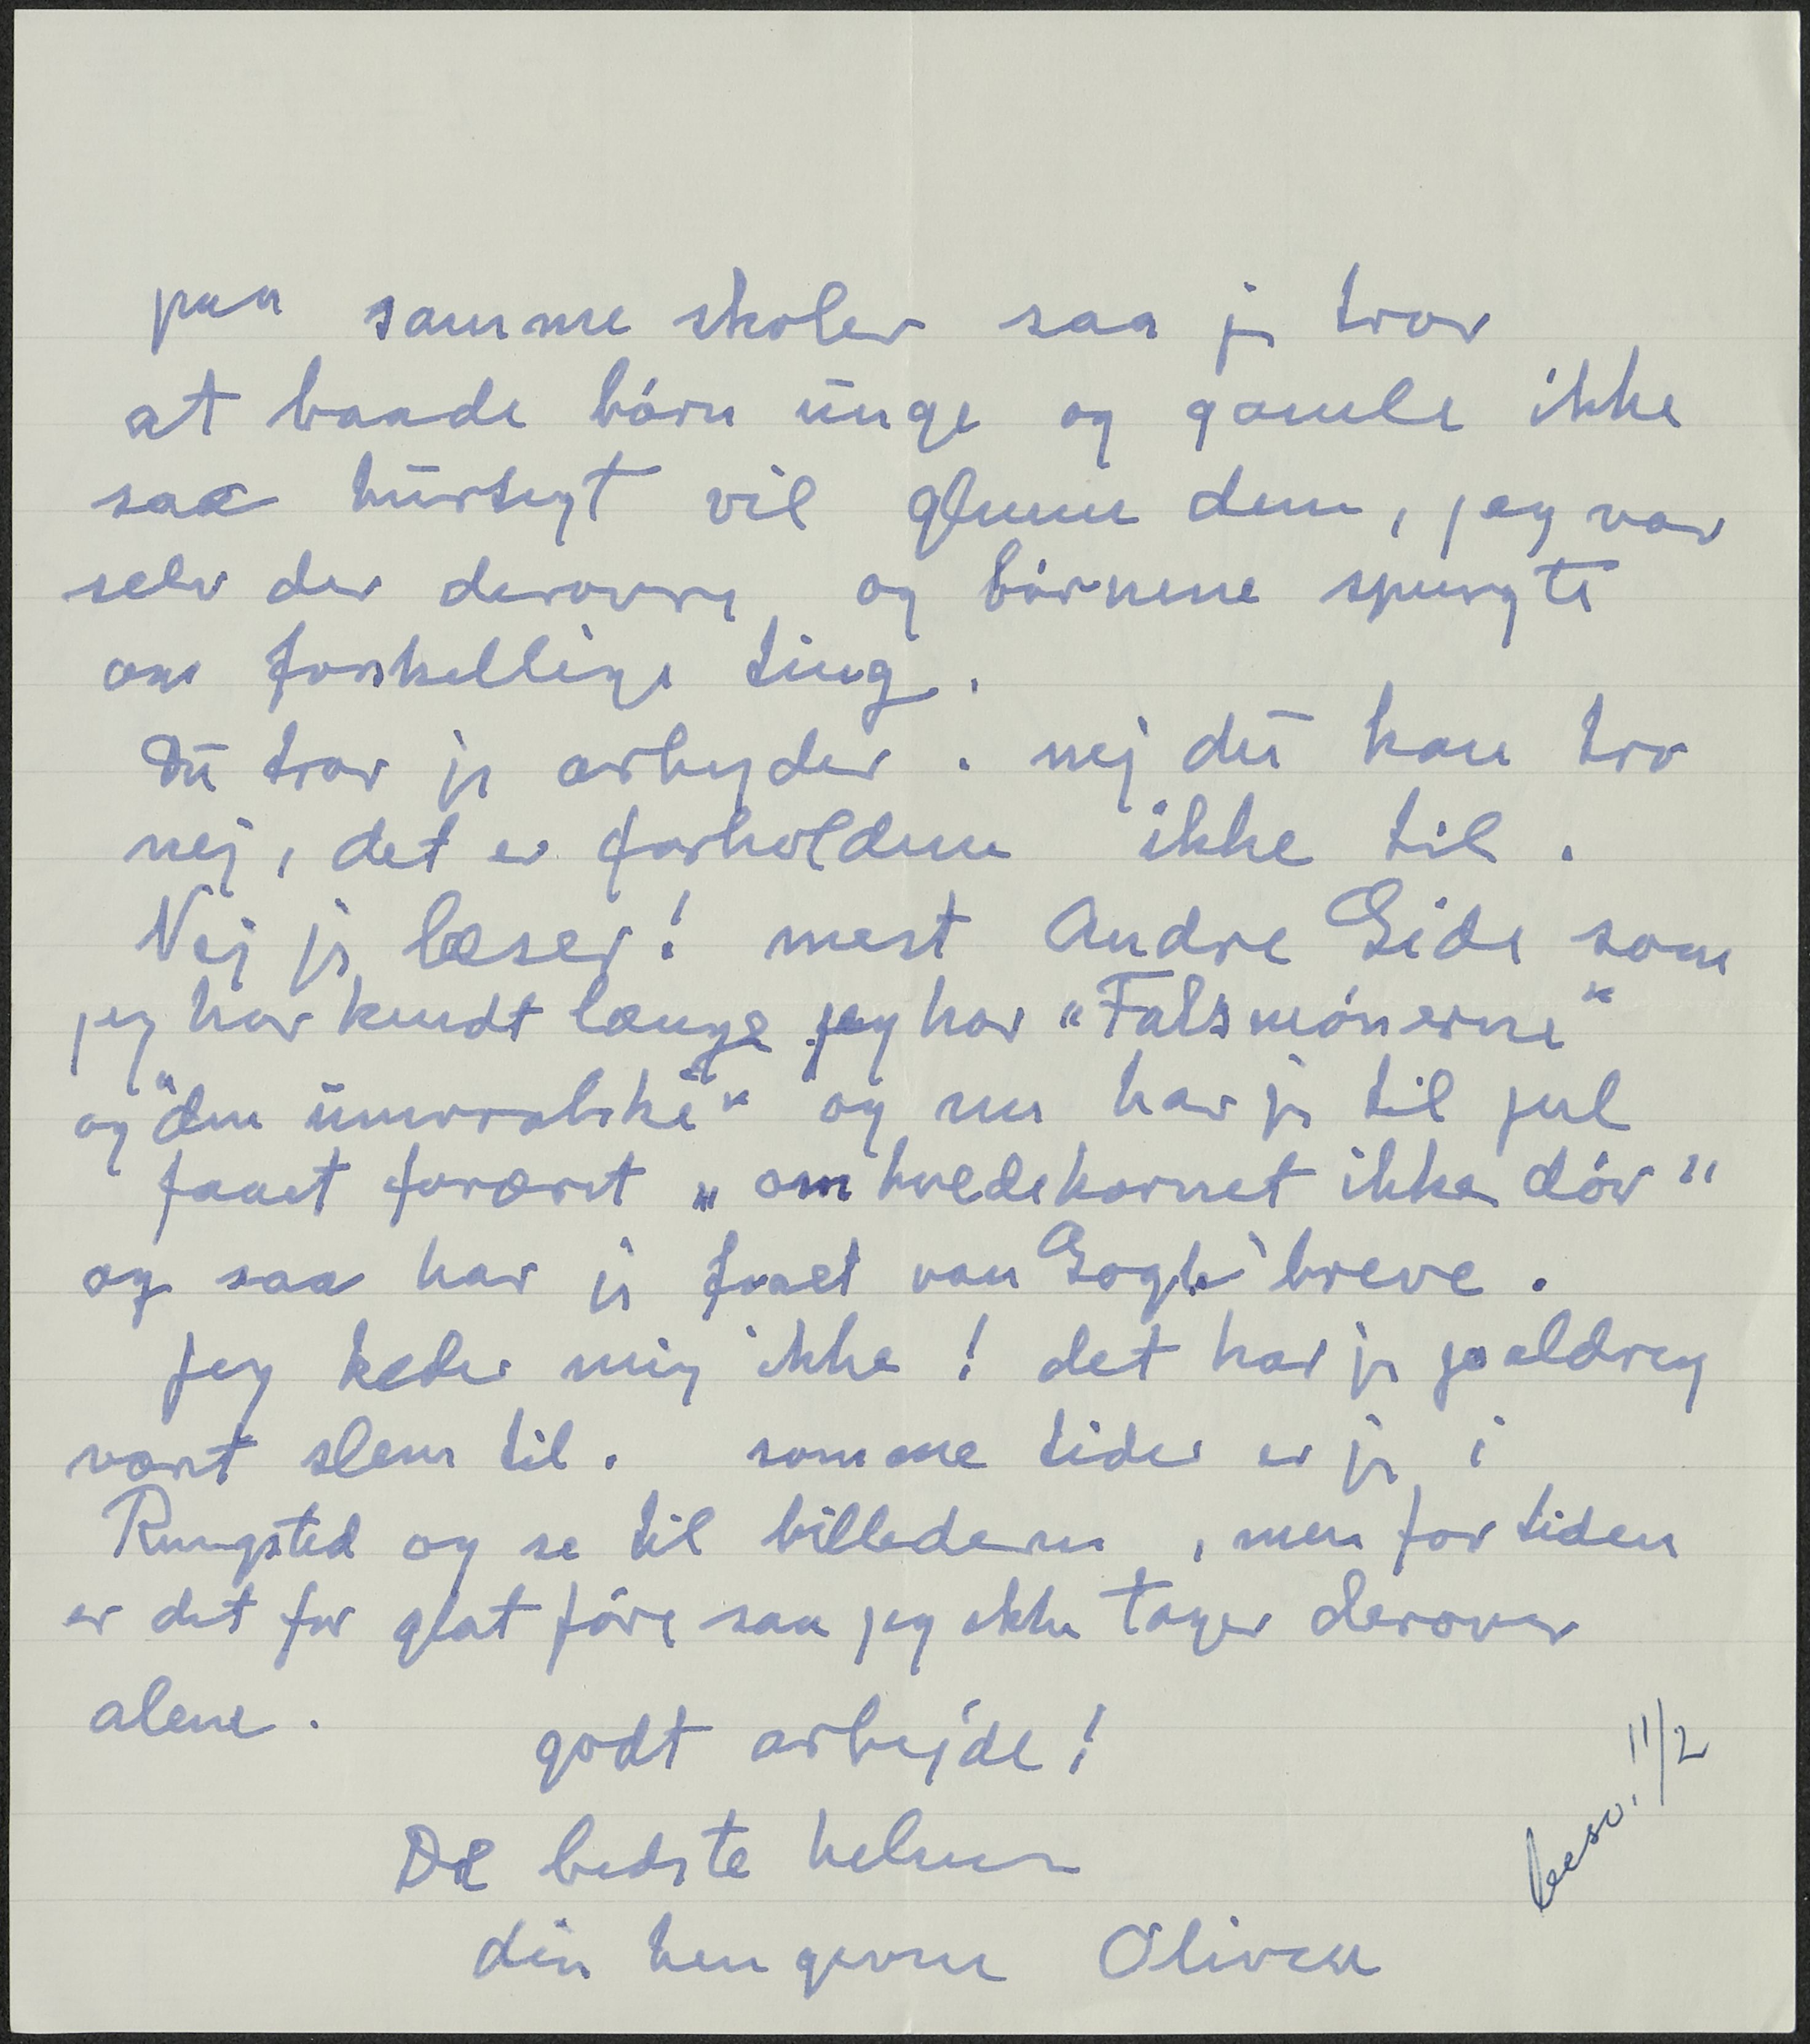 paa samme skoler saa jg tror
at baade börn unge og gamle ikke
saa hurtigt vil glemme dem, jeg var
selv der derovre og börnene spurgte
om forskellige ting.
Du tror jg arbejder. nej du kan tro
nej, det er forholdene ikke til.
Nej jg læser! mest Andre Gide som
jeg har kendt længe jeg har "Falsmönerne"
og "den umoralske" og nu har jg til jul
faaet foræret "om hvedekornet ikke dör"
og saa har jg faaet van Gogh' breve.
Jeg keder mig ikke! det har jg jo aldrig
været slem til. somme tider er jg i
Rungsted og se til billederne, men for tiden
er det for glat före saa jeg ikke tager derover
alene.
godt arbejde!
De bedste hilsner
din hengivne Olivia
besv. 11/2